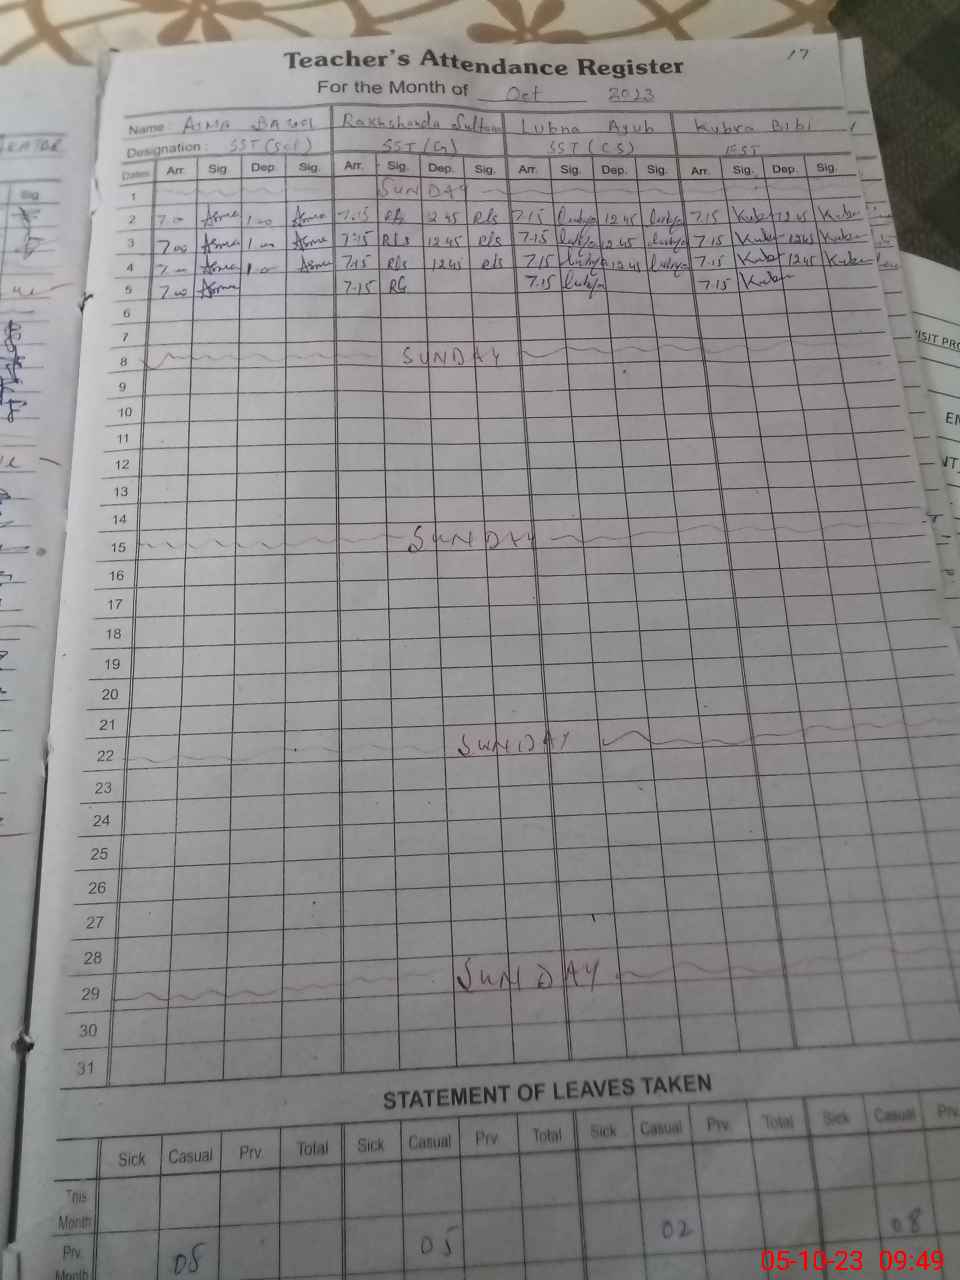 17
Teacher's Attendance Register
For the Month of Oct 2023
Name : Rakhshanda Sultana Lubna Ayub Kubra BiBi
Designation : SST (Sci) SST (G) SST (CS) EST
Dates Arr. Sig. Dep. Sig. Arr. Sig. Dep. Sig. Arr. Sig. Dep. Sig. Arr. Sig. Dep. Sig.
1 SUNDAY
2 7.00 Asma 1.00 Asma 7.15 Rls 12 45 Rls 7.15 12 45 7.15 12 45
3 7.00 Asma 1.00 Asma 7.15 Rls 12 45 Rls 7.15 12 45 7.15 12 45
4 7.00 Asma 1.00 Asma 7.15 Rls 12 45 Rls 7.15 12 45 7.15 12 45
5 7.00 Asma 7.15 7.15 7.15
6
7
8 SUNDAY
9
10
11
12
13
14
15 SUNDAY
16
17
18
19
20
21
22 SUNDAY
23
24
25
26
27
28
29 SUNDAY
30
31
STATEMENT OF LEAVES TAKEN
Sick Casual Prv. Total Sick Casual Prv. Total Sick Casual Prv. Total Sick Casual Prv.
This
Month
Prv.
Month 05 05 02 08
05-10-23 09:49
Sig
ISIT PRO